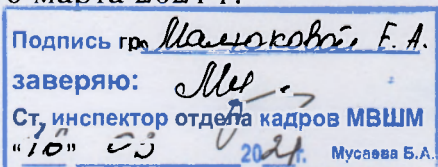 6 марта 2021 г.
Подпись гр. Малюковой Е. А.
заверяю:
Ст. инспектор отдела кадров МВШМ
"16" 03 2021г. Мусаева Б.А.